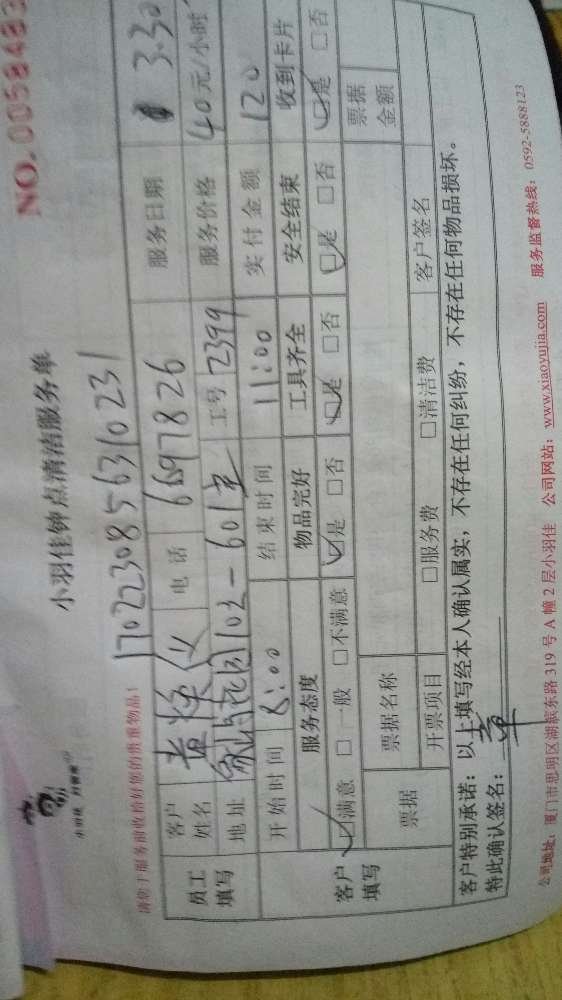 NO.0058483
小羽佳钟点清洁服务单
1702230856310231
请您于服务前收拾好您的贵重物品!
员工填写
客户姓名 黄 电话 6697826 服务日期 3.30
地址 102-601 工号 2399 服务价格 40元/小时
开始时间 8:00 结束时间 11:00 实付金额 120
客户填写
服务态度 物品完好 工具齐全 安全结束 收到卡片
☑满意 □一般 □不满意 ☑是 □否 ☑是 □否 ☑是 □否 ☑是 □否
票据 票据名称 票据金额
开票项目 □服务费 □清洁费 客户签名
客户特别承诺:以上填写经本人确认属实,不存在任何纠纷,不存在任何物品损坏。
特此确认签名:
公司地址:厦门市思明区湖滨东路 319 号 A 幢 2 层小羽佳 公司网站:www.xiaoyujia.com 服务监督热线:0592-5888123